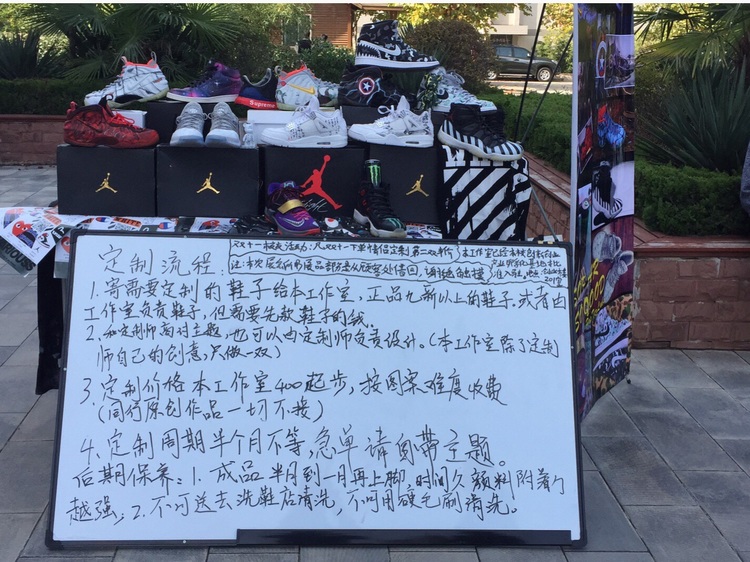 Supreme
定制流程:
双十一校友活动:凡双十一下单情侣定制第二双半价
注:本次展
1.寄需要定制的鞋子给本工作室,正品九新以上的鞋子,或者由
工作室负责鞋子,但需要先款鞋子的钱.
2.和定制师商讨主题,也可以由定制师负责设计。(本工作室除了定制
师自己的创意,只做一双)
3.定制价格本工作室400起步,按图案难度收费
(同行原创作品一切不接)
4.定制周期半个月不等,急单请自带主题。
后期保养:1.成品半月到一月再上脚,时间久颜料附着力
越强;2.不可送去洗鞋店清洗,不可用硬毛刷清洗。